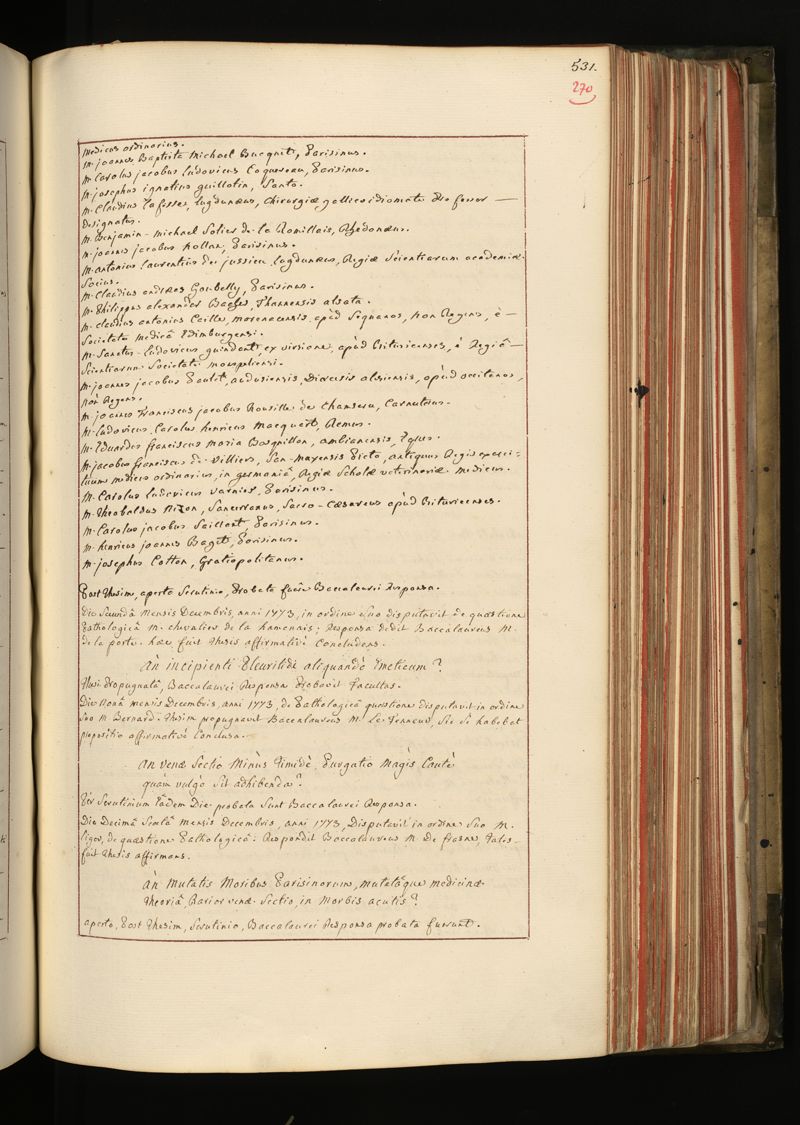 531.
270
Medicus ordinarius.
M. joannes Baptista Michael Bucquet, Parisinus.
M. Carolus jacobus Ludovicus Coquereau, Parisinus.
M. josephus ignatius guillotin, Santo.
M. Claudius Lafisse, lugdunæus, Chirurgiæ gallico idiomate Professor —
Designatus.
M. Benjamin-Michael Solier de la Romillais, Rhedonæus.
M. joannes jacobus Nollan, Parisinus.
M. antonius Laurentius de jussieu, Lugdunæus, Regiæ Scientiarum academiæ
Socius.
M. Claudius andreas Goubelly, Parisinus.
M. Philippus alexander Bacher, Thannensis alsata.
M. Claudius antonius Caille, apùd Sequanos, Non Regens, è —
Societate Medicâ Edimburgensi.
M. Ludovicus guindant, ex virsione, apùd Bituricenses, è Regiâ —
Scientiarum Societate monspeliensi.
M. joannes jacobus Paulet, andusiensis, Diœcesis alesiensis, apùd occitanos,
Non Regens.
M. joannes Franciscus jacobus Rousille de Chamseru, Carnutæus.
M. Ludovicus Carolus henricus Macquart, Remus.
M. Eduardus franciscus Maria Bosquillon, ambianensis, Eques.
M. jacobus franciscus de Villiers, San-Maxensis Picto, antiquus Regis exerci-
tuum Medicus ordinarius, in germaniâ, Regiæ Scholæ veterinariæ Medicus.
M. Carolus Ludovicus varnier, Parisinus.
M. Theobaldus Sancerranus, Sacro-Cæsareus apùd Bituricenses.
M. Carolus jacobus Saillant, Parisinus.
M. henricus joannes Baget, Parisinus.
M. josephus Cotton, Gratiopolitanus.
Post Thesim, aperto Scrutinio, Probata fuêre Baccalaurei Responsa.
Die Secundâ Mensis Decembris, anni 1773, in ordine Suo disputavit de quæstione
Pathologicâ M. chevalier de la hamenais; Responsa dedit Baccalaureus M.
de la porte. hæc fuit Thesis affirmativè Concludens.
An incipienti Pleuritidi aliquandò Emeticum?
Thesi Propugnatâ, Baccalaurei Responsa Probavit facultas.
Die Nonâ mensis Decembris, anni 1773, de Pathologicâ quæstione disputavit in ordine
Suo M. Bernard. Thesim propugnavit Baccalaureus M. Le Tenneur, Sic Se habebat
propositio affirmativè Conclusa.
An venæ Sectio Minùs Timidè, Purgatio Magis Cautè
quàm vulgò Sit adhibenda?
Per Scrutinium Eâdem Die probata Sunt Baccalaurei Responsa.
Die Decimâ Sextâ Mensis Decembris, anni 1773, Disputavit in ordine Suo M.
liger, de quæstione Pathologicâ: Respondit Baccalaureus M. De frasne, Talis-
fuit Thesis affirmans.
An Mutatis Moribus Parisinorum, mutatâque Medicinæ
Theoriâ, Rarior venæ Sectio, in Morbis acutis?
aperto, Post Thesim, Scrutinio, Baccalaurei Responsa probata fuerunt.